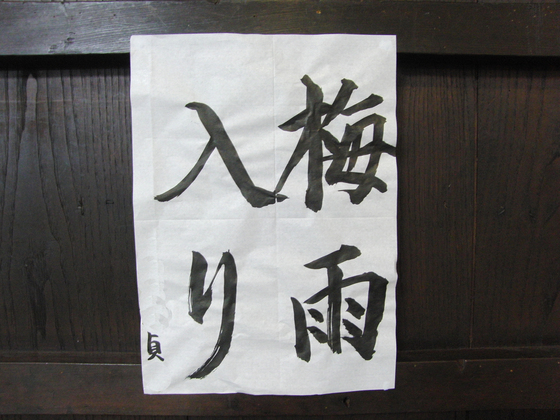 梅雨
入り
貞